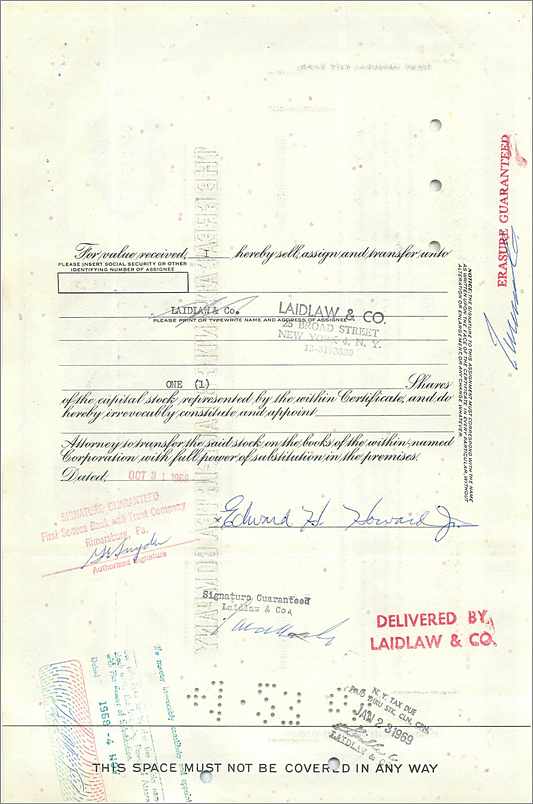 For value received, I hereby sell, assign and transfer unto
PLEASE INSERT SOCIAL SECURITY OR OTHER
IDENTIFYING NUMBER OF ASSIGNEE
LAIDLAW & Co.
PLEASE PRINT OR TYPEWRITE NAME AND ADDRESS OF ASSIGNEE
LAIDLAW & CO.
25 BROAD STREET
NEW YORK 4, N. Y.
ONE (1) Shares
of the capital stock represented by the within Certificate, and do
hereby irrevocably constitute and appoint
Attorney to transfer the said stock on the books of the within-named
Corporation with full power of substitution in the premises.
Dated, OCT 31 1968
NOTICE: THE SIGNATURE TO THIS ASSIGNMENT MUST CORRESPOND WITH THE NAME
AS WRITTEN UPON THE FACE OF THE CERTIFICATE IN EVERY PARTICULAR, WITHOUT
ALTERATION OR ENLARGEMENT OR ANY CHANGE WHATEVER.
ERASURE GUARANTEED
Edward H Howard Jr.
SIGNATURE GUARANTEED
First Seneca Bank and Trust Company
Rimersburg, Pa.
Authorized Signature
Signature Guaranteed
Laidlaw & Co.
DELIVERED BY
LAIDLAW & CO.
N. Y. TAX DUE
PAID THRU STK. CLN. CPN.
JAN 23 1969
LAIDLAW & CO.
THIS SPACE MUST NOT BE COVERED IN ANY WAY